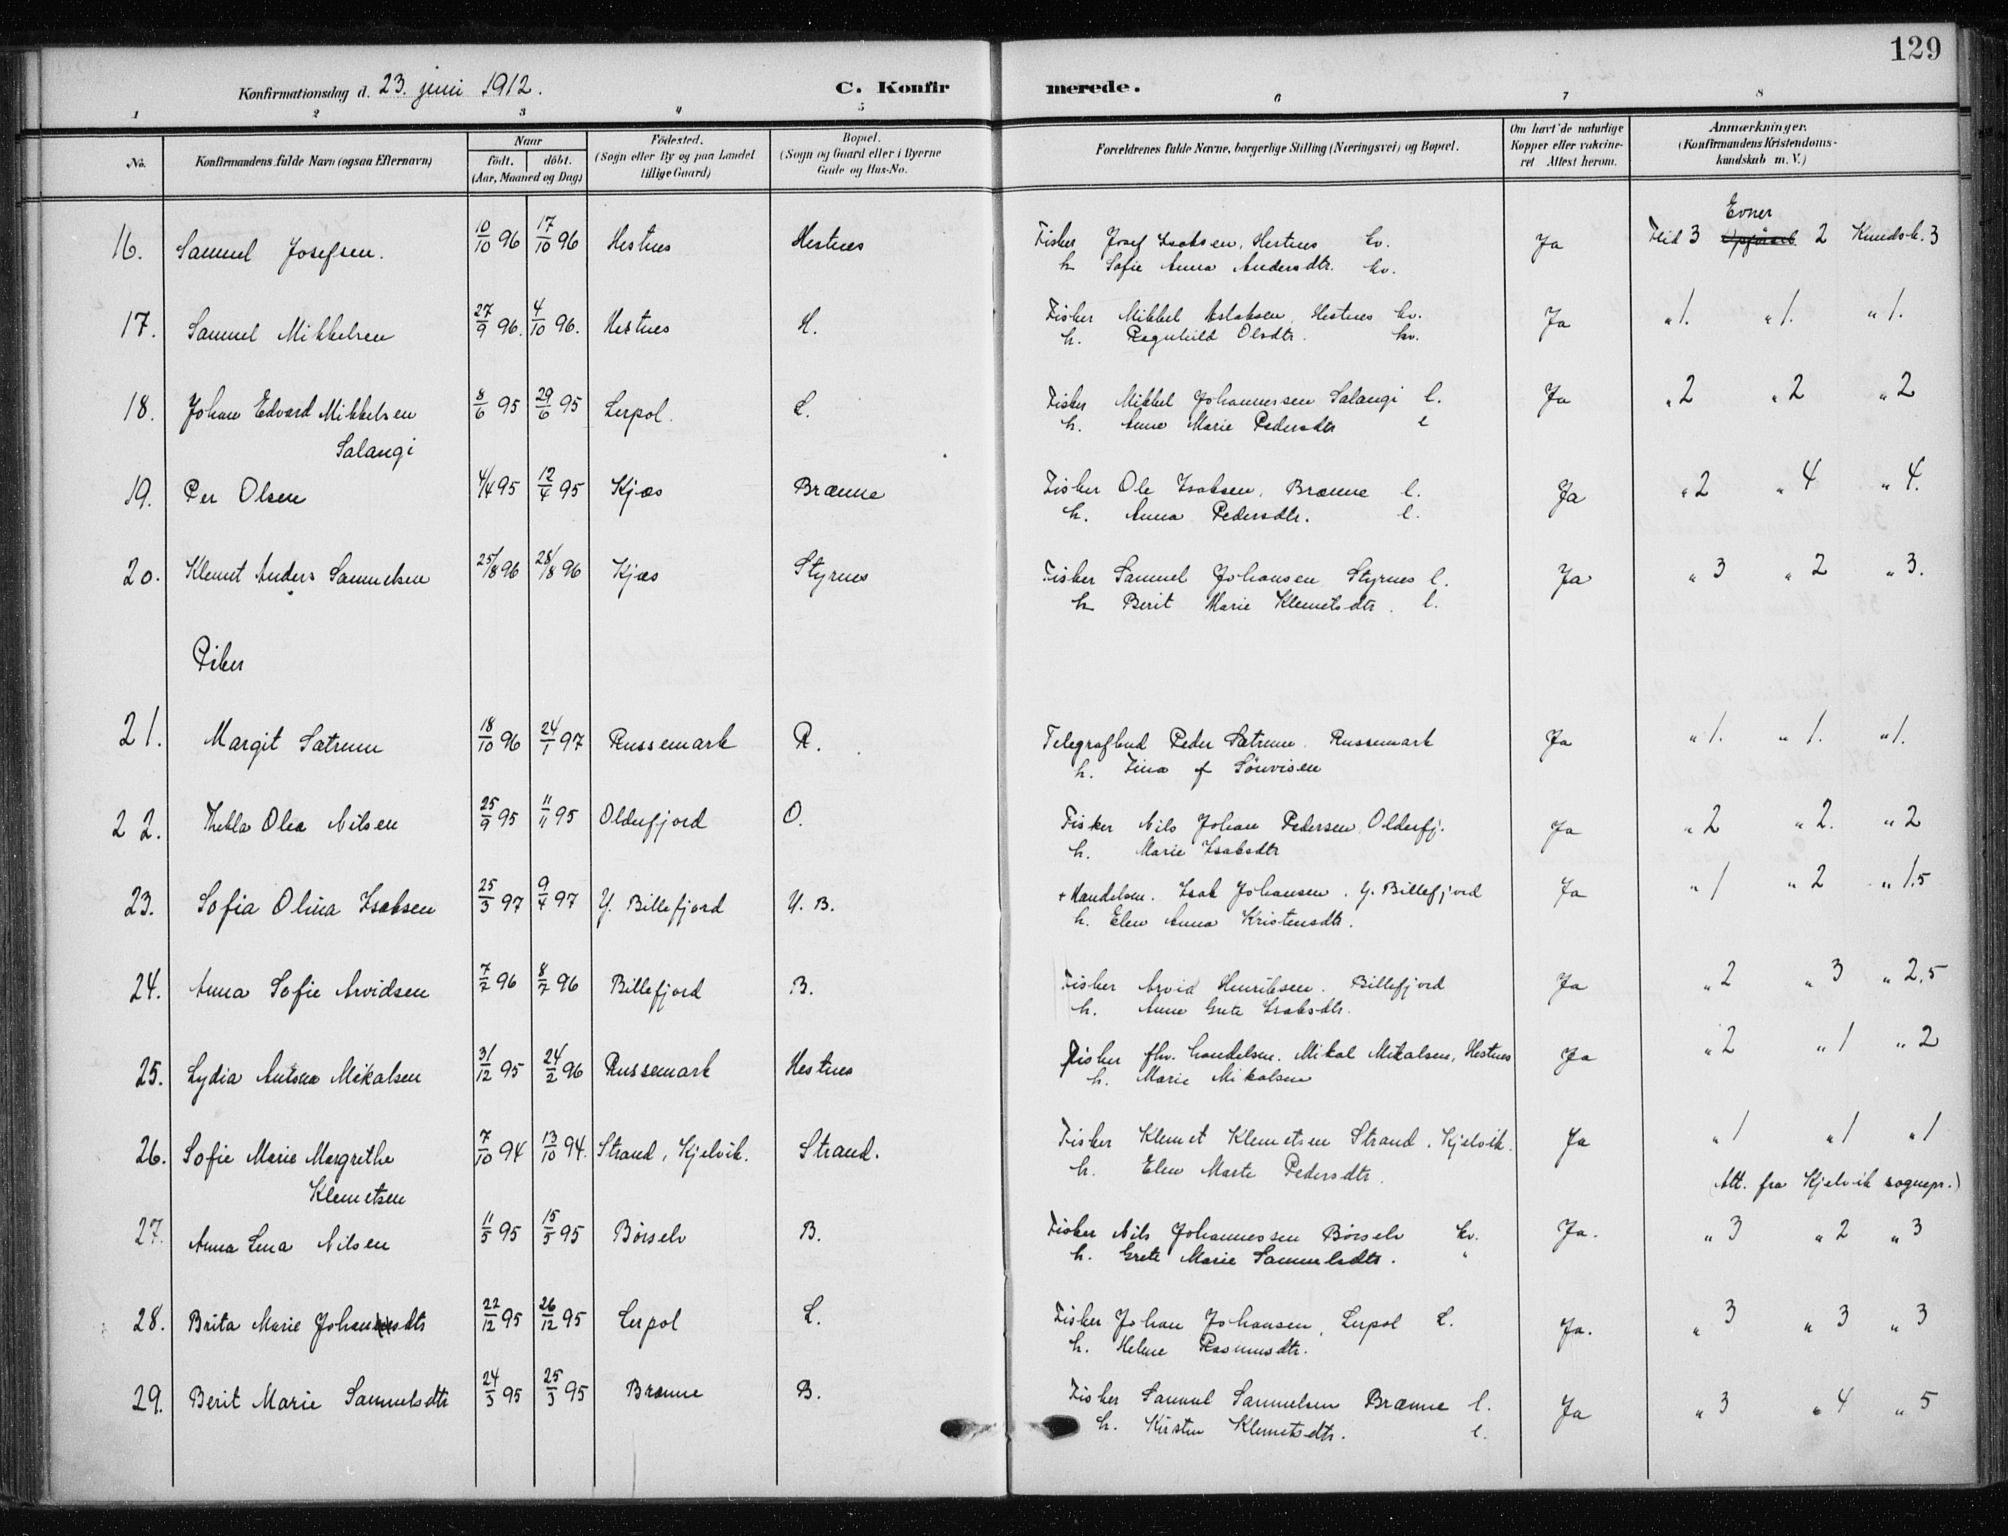 129
Konfirmationsdag d. 23. juni 1912.
C. Konfirmerede.
1 2 3 4 5 6 7 8
No. | Konfirmandens fulde Navn (ogsaa Efternavn) | Naar født. døbt. (Aar, Maaned og Dag) | Fødested. (Sogn eller By og paa Landet tillige Gaard) | Bopæl. (Sogn og Gaard eller i Byerne Gade og Hus-No. | Forældrenes fulde Navne, borgerlige Stilling (Næringsvei) og Bopæl. | Om havt de naturlige Kopper eller vakcineret Attest herom. | Anmærkninger. (Konfirmandens Kristendomskundskab m. V.)
16. Samuel Josefsen. 10/10 96 17/10 96 Hestnes Hestnes Fisker Josef Isaksen, Hestnes kv. Ja Flid 3 Evner 2 Kundsk. 3
h Sofie Anna Andersdtr. kv.
17. Samuel Mikkelsen 27/9 96. 4/10 96. Hestnes H. Fisker Mikkel Aslaksen, Hestnes kv. Ja " 1. " 1. " 1.
h. Ragnhild Olsdtr. kv.
18. Johan Edvard Mikkelsen 8/6 95 29/6 95 Lerpol. L. Fisker Mikkel Johannessen Salangi l. Ja " 2 " 2 " 2
Salangi h. Anne Marie Pedersdtr l
19. Per Olsen 4/4 95 12/4 95 Kjæs Brænne Fisker Ole Isaksen, Brænne l. Ja " 2 " 4 " 4.
h. Anna Pedersdtr. l.
20. Klemet Anders Samuelsen 25/8 96 28/8 96 Kjæs Styrnes Fisker Samuel Johansen Styrnes l. Ja " 3 " 2 " 3.
h Berit Marie Klemetsdtr. l.
Piker
21. Margit Sætrum 18/10 96 24/1 97 Russemark R. Telegrafbud Peder Sætrum. Russemark Ja " 1. " 1. " 1.
h. Lina f Sönvisen
22. Thekla Olea Nilsen 25/9 95 11/11 95 Olderfjord O. Fisker Nils Johan Pedersen, Olderfj. Ja " 2 " 2. " 2
h. Marie Isaksdtr
23. Sofia Olina Isaksen 25/3 97 9/4 97 Y. Billefjord Y. B. + Handelsm. Isak Johansen. Y. Billefjord Ja " 1 " 2 " 1.5
h. Elen Anna Kristensdtr.
24. Anna Sofie Arvidsen 7/2 96 8/2 96 Billefjord B. Fisker Arvid Henriksen. Billefjord Ja " 2 " 3 " 2,5
h. Anne Grete Isaksdtr.
25. Lydia Antona Mikalsen 31/12 95 24/2 96 Russemark Hestnes Fisker fhv. handelsm. Mikal Mikalsen, Hestnes Ja " 2 " 1 " 2
h. Marie Mikalsen
26. Sofie Marie Margrethe 7/10 94 13/10 94. Strand, Kjelvik. Strand. Fisker Klemet Klemetsen Strand, Kjelvik. Ja " 1 " 1 " 1
Klemetsen h. Elen Marte Pedersdtr. (Att. fra Kjelvik sognepr.)
27. Anna Lena Nilsen 11/5 95 15/5 95 Børselv B. Fisker Nils Johannessen Børselv kv. Ja. " 3 " 2 " 3
h. Grete Marie Samuelsdtr. "
28. Brita Marie Johansdtr 22/12 95 26/12 95 Lerpol L. Fisker Johan Johansen, Lerpol L. Ja. " 3 " 3 " 3
h. Helene Rasmusdtr.
29. Berit Marie Samuelsdtr 24/3 95 25/3 95 Brænne B. Fisker Samuel Samuelsen Brænne l. Ja " 3 " 4 " 5
h. Kirsten Klemetsdtr. l.